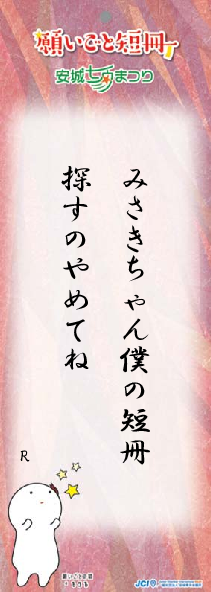 願いごと短冊
安城七夕まつり
みさきちゃん僕の短冊
探すのやめてね
R
願いごと短冊
JCI